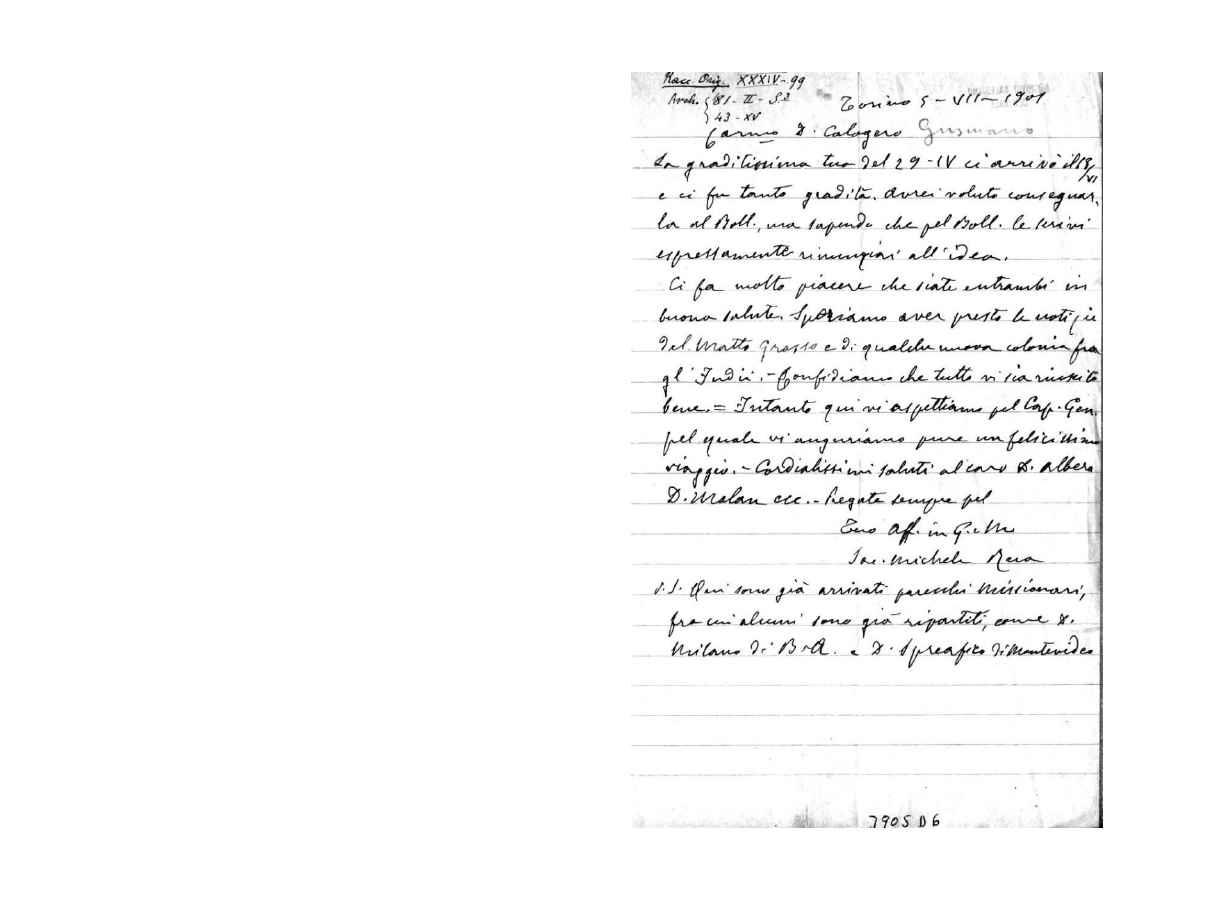 Racc. Orig. XXXIV-99
Arch. { 81-II-S.3
43-XV
Torino 5-VII-1901
Carmo D. Calogero Gusmano
La graditissima tua del 29-IV ci arrivò il 18/VI
e ci fu tanto gradita. Avrei voluto consegnar-
la al Boll., ma sapendo che pel Boll. le scrivi
espressamente rinunziai all'idea.
Ci fa molto piacere che siate entrambi in
buona salute. Speriamo aver presto le notizie
del Matto Grosso e di qualche nuova colonia fra
gl'Indii. - Confidiamo che tutto vi sia riuscito
bene. = Intanto qui vi aspettiamo pel Cap. Gen.
pel quale vi auguriamo pure un felicissimo
viaggio. - Cordialissimi saluti al caro D. Albera
D. Malan ecc. - Pregate sempre pel
Tuo Aff. in G. e M.
Sac. Michele Rua
P.S. Qui sono già arrivati parecchi Missionari,
fra cui alcuni sono già ripartiti, come D.
Milano di B. A. e D. Spreafico di Montevideo
3905 D6